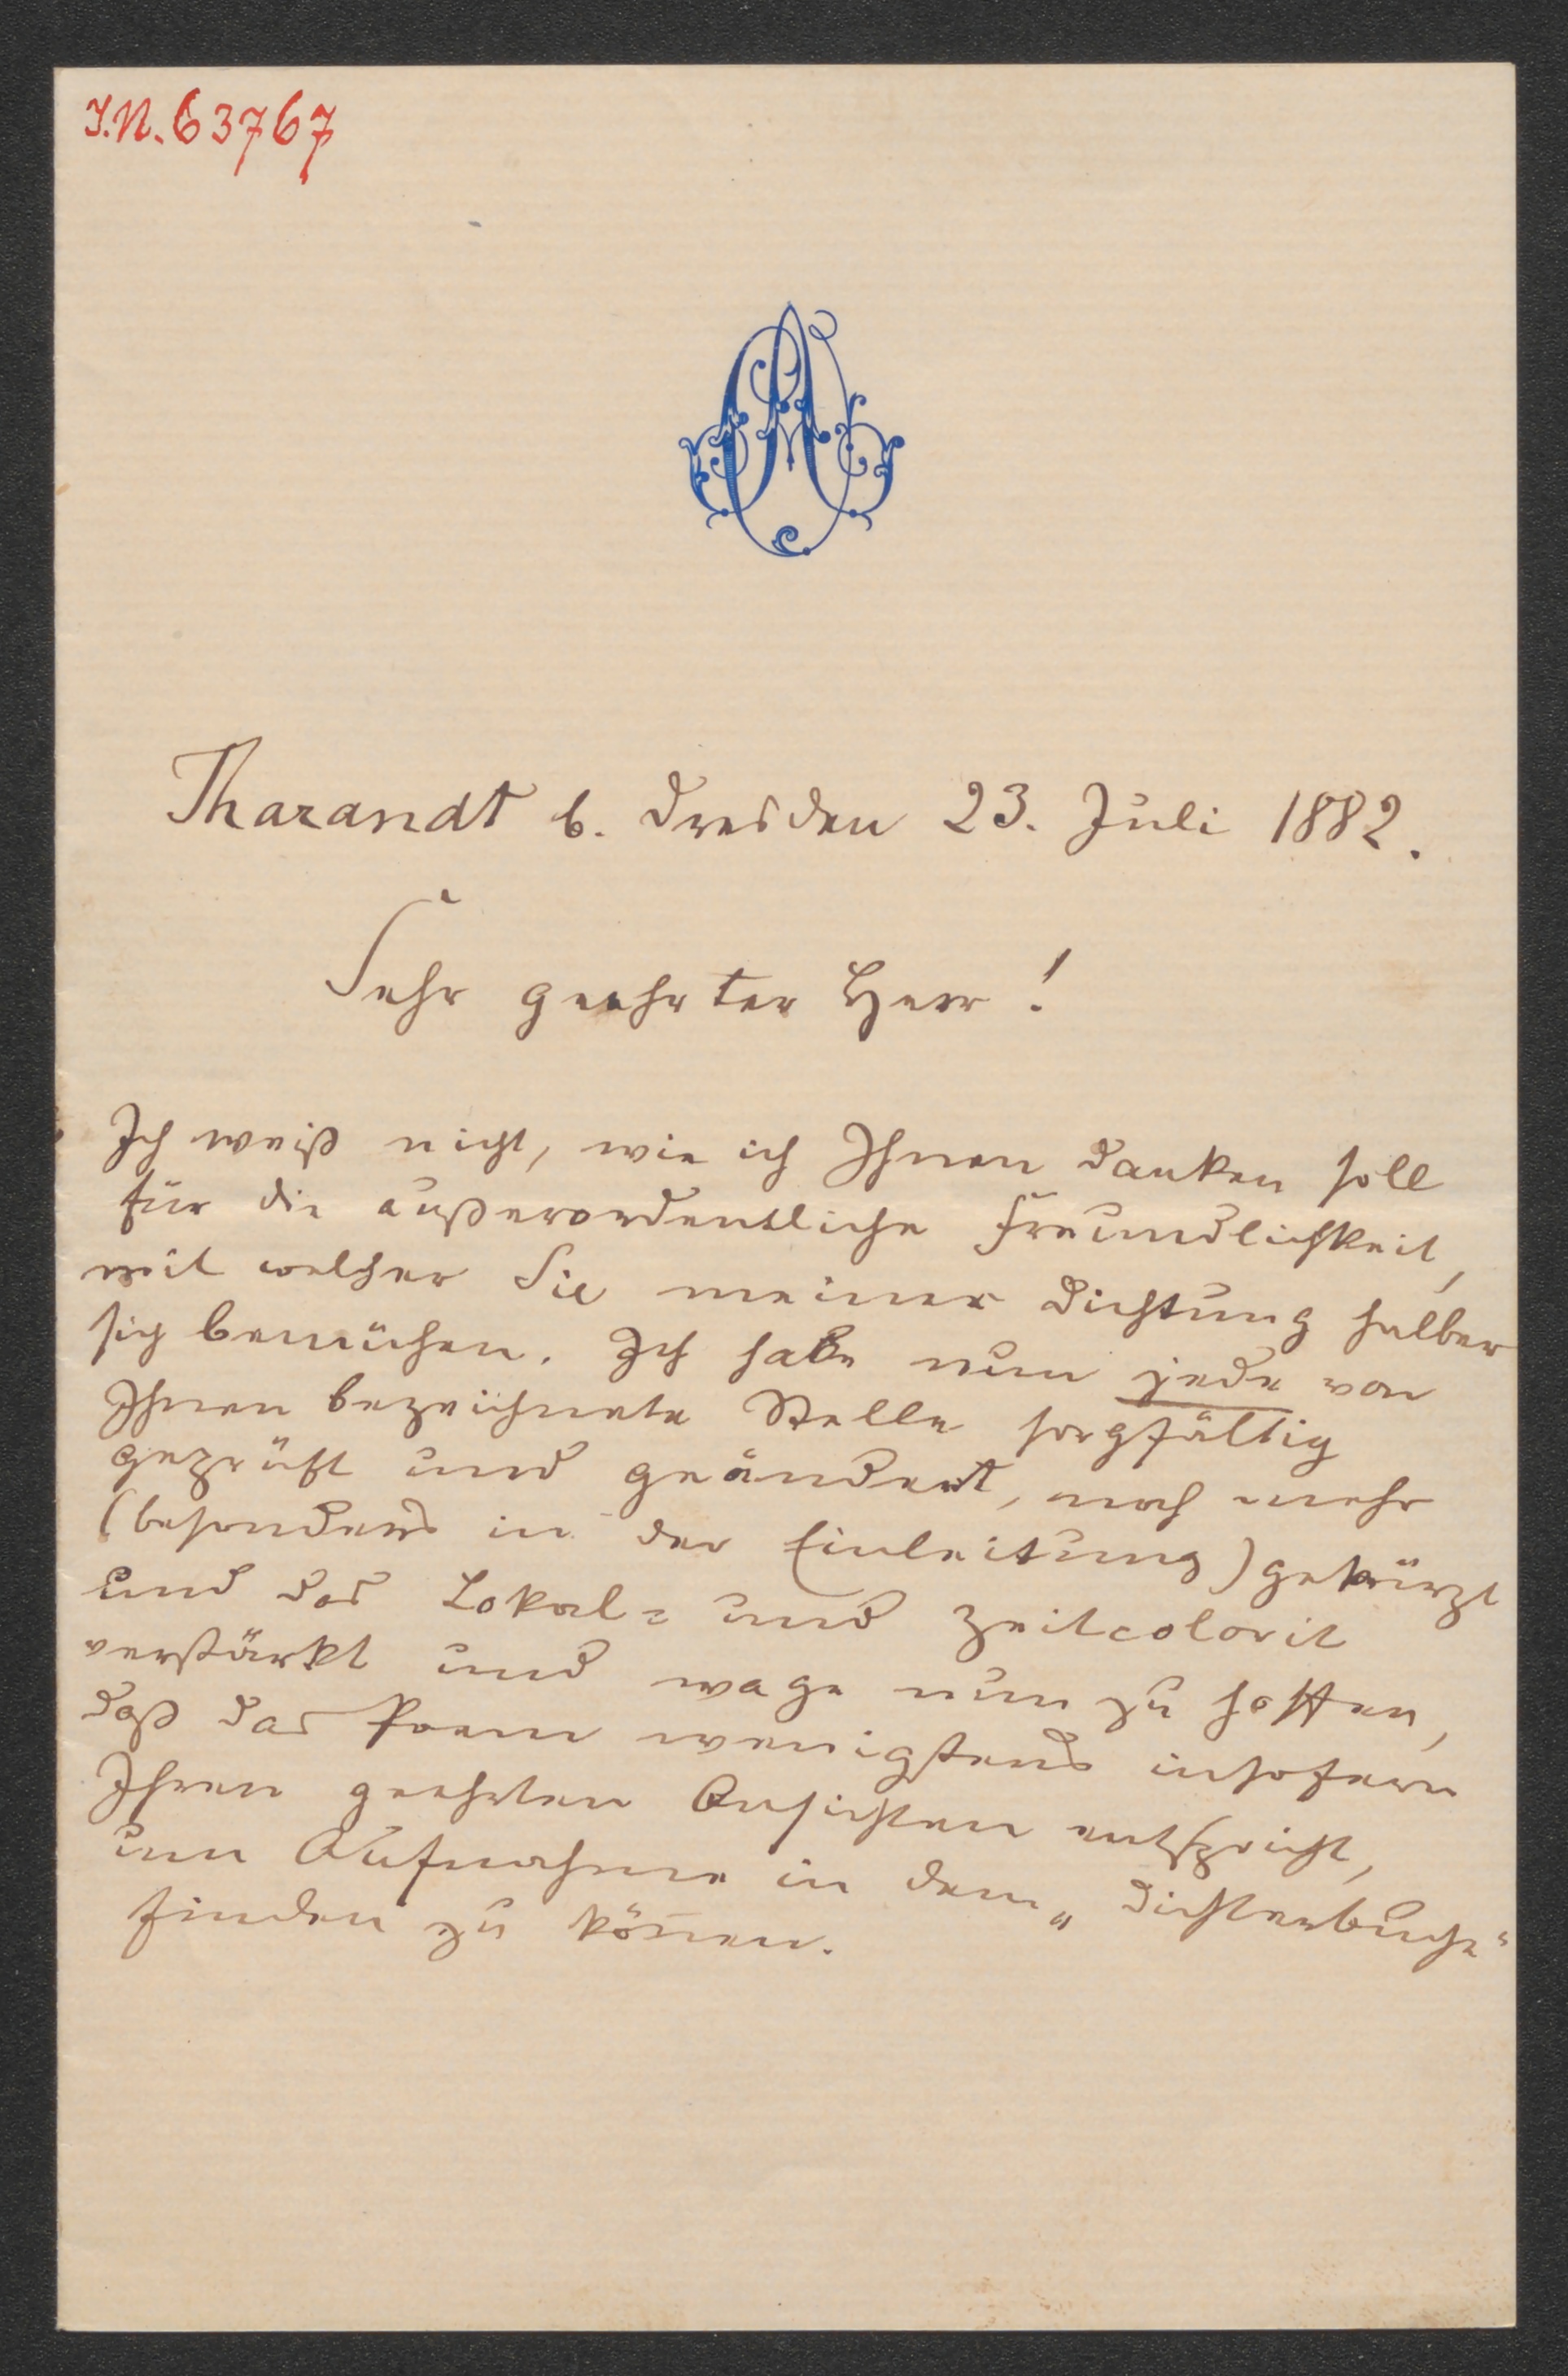 I.N. 63767
Tharandt b. Dresden 23. Juli 1882.
Sehr geehrter Herr!
Ich weiß nicht, wie ich Ihnen danken soll
für die außerordentliche Freundlichkeit,
mit welcher Sie meiner Dichtung halber
sich bemühen. Ich habe nun jede von
Ihnen bezeichnete Stelle sorgfältig
geprüft und geändert, noch mehr
(besonders in der Einleitung) gekürzt
und das Lokal- und Zeitcolorit
verstärkt und wage nun zu hoffen,
daß das Poem wenigstens insofern
Ihren geehrten Ansichten entspricht,
um Aufnahme in dem „Dichterbuche“
finden zu können.